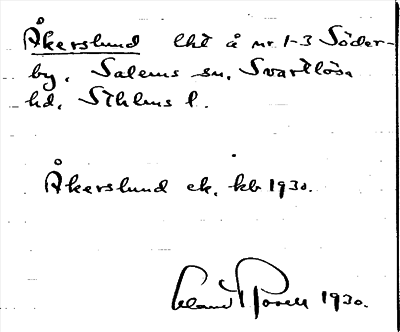 Åkerslund lht å nr 1-3 Söder-
by, Salems sn, Svartlösa
hd, Sthlms l.
Åkerslund ek. kb 1930.
1930.